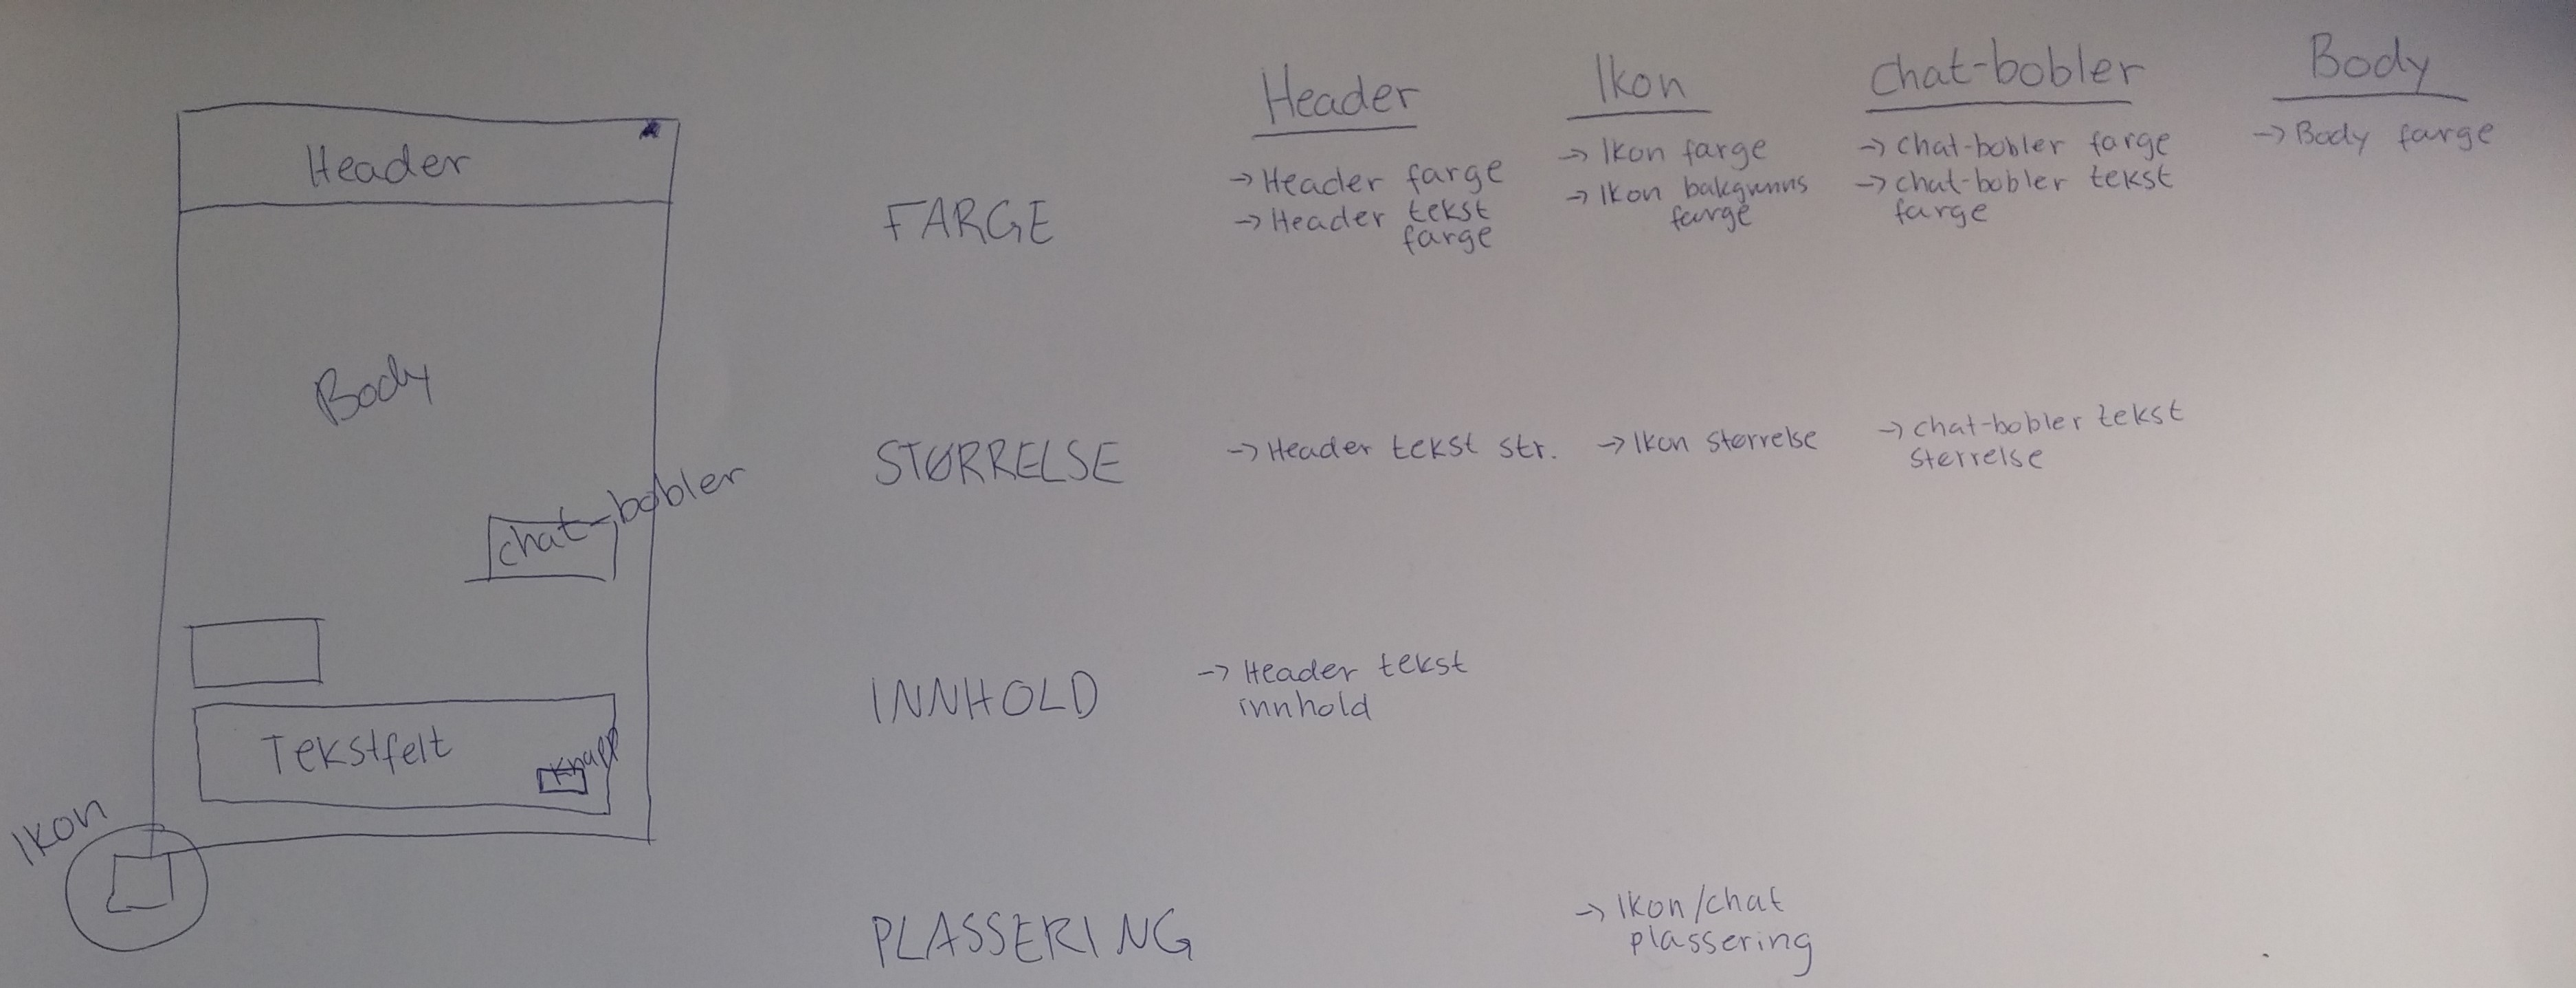 Header
Body
chat-bobler
Tekstfelt
Knapp
Ikon
Header
Ikon
Chat-bobler
Body
FARGE
→ Header farge
→ Header tekst
farge
→ Ikon farge
→ Ikon bakgrunns
farge
→ chat-bobler farge
→ chat-bobler tekst
farge
→ Body farge
STØRRELSE
→ Header tekst str.
→ Ikon størrelse
→ chat-bobler tekst
størrelse
INNHOLD
→ Header tekst
innhold
PLASSERING
→ Ikon/chat
plassering